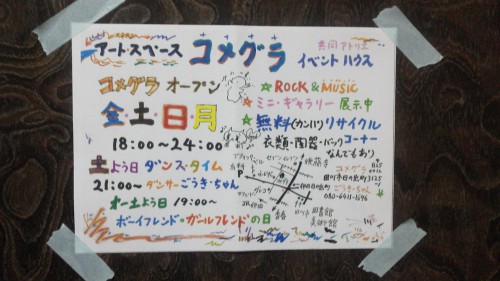 アート・スペース コメグラ
共同アトリエ
イベントハウス
コメグラ オープン
金・土・日・月
18:00〜24:00
土よう日 ダンス・タイム
21:00〜 ダンサーごうき・ちゃん
オー土よう日 19:00〜
ボーイフレンド・ガールフレンドの日
☆ROCK & MUSIC
☆ミニ・ギャラリー 展示中
☆無料(カンパ)リサイクル
衣類・陶器・バッグ コーナー
なんでもあり
コメグラ
ごうき・ちゃん
図書館
美術館